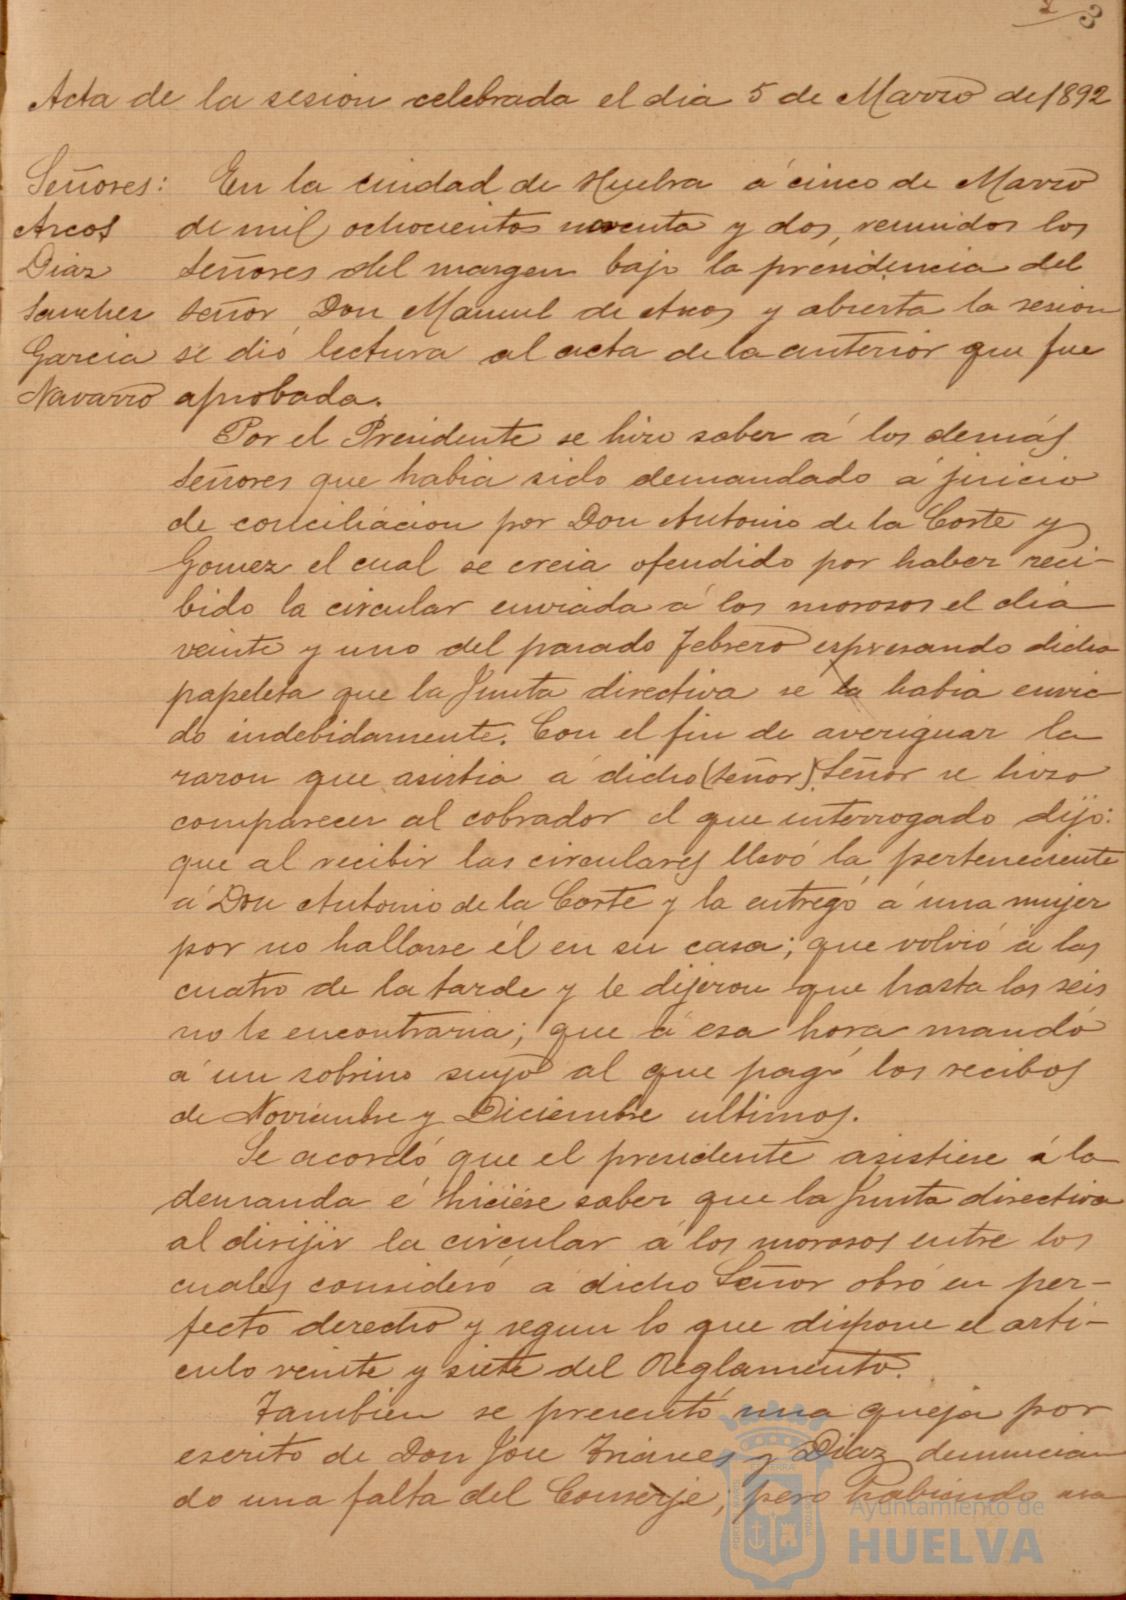 3
Acta de la sesion celebrada el dia 5 de Marzo de 1892
Señores:
Arcos
Diaz
Sanchez
Garcia
Navarro
En la ciudad de Huelva á cinco de Marzo
de mil ochocientos noventa y dos, reunidos los
señores del margen bajo la presidencia del
señor, Don Manuel de Arcos y abierta la sesion
se dió lectura al acta de la anterior que fue
aprobada.
Por el Presidente se hizo saber á los demás
señores que habia sido demandado á juicio
de conciliacion por Don Antonio de la Corte y
Gomez el cual se creia ofendido por haber reci-
bido la circular enviada á los morosos el dia
veinte y uno del pasado febrero espresando dicha
papeleta que la Junta directiva se la habia envia
do indebidamente. Con el fin de averiguar la
razon que asistia á dicho (señor) Señor se hizo
comparecer al cobrador el que interrogado dijo:
que al recibir las circulares llevó la perteneciente
á Don Antonio de la Corte y la entregó á una mujer
por no hallarse él en su casa; que volvió á las
cuatro de la tarde y le dijeron que hasta las seis
no le encontraria; que á esa hora mandó
á un sobrino suyo al que pagó los recibos
de Noviembre y Diciembre ultimos.
Se acordó que el presidente asistiese á la
demanda é hiciese saber que la Junta directiva
al dirijir la circular á los morosos entre los
cuales consideró á dicho Señor obró en per-
fecto derecho y segun lo que dispone el arti-
culo veinte y siete del Reglamento.
Tambien se presentó una queja por
escrito de Don Jose Trianes y Diaz denuncian
do una falta del Conserje, pero habiendo
Ayuntamiento de
HUELVA